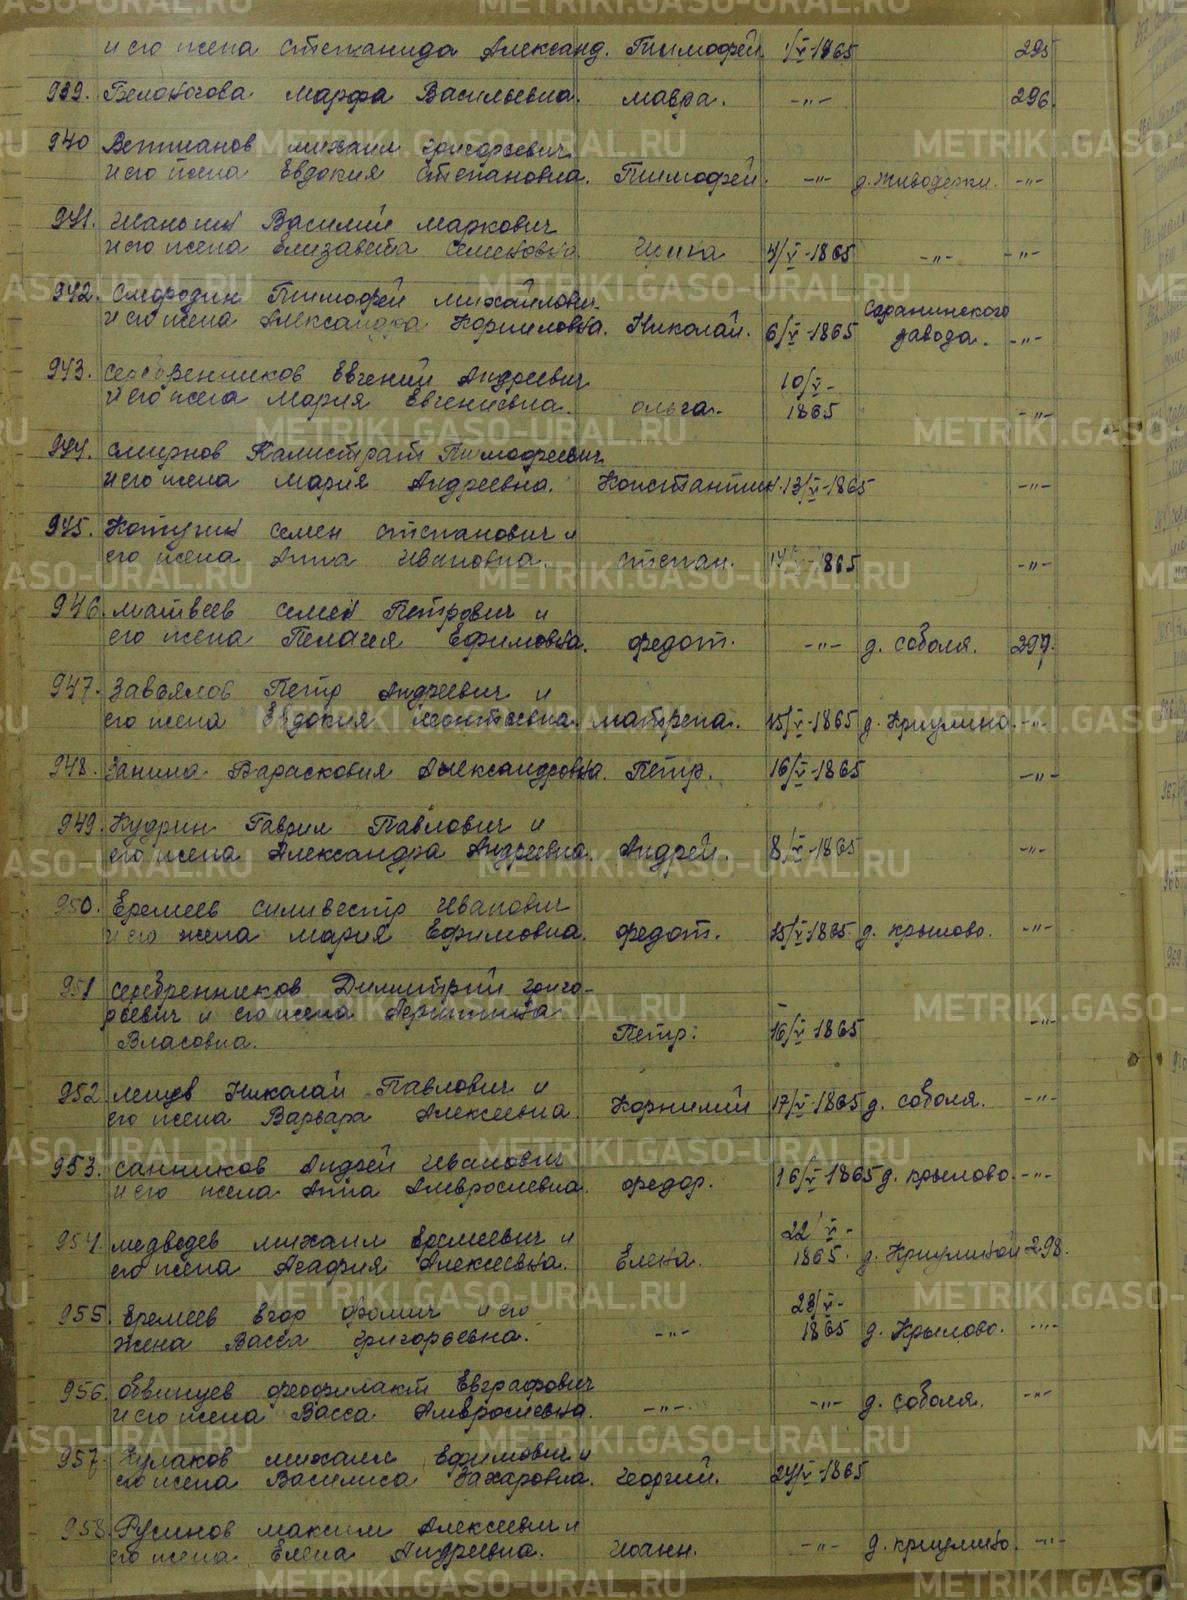 и его жена Степанида Александ. Тимофей 1/V-1865 295
939. Белоногова Марфа Васильевна. Мавра. -"- 296.
940 Ветшанов Михаил Григорьевич
и его жена Евдокия Степановна. Тимофей. -"- -"-
941. Василий Маркович
и его жена Елизавета Семеновна Ирина 4/V-1865 -"- -"-
942. Смородин Тимофей Михайлович
и его жена Александра Корниловна. Николай. 6/V-1865 Саранинского завода. -"-
943. Серебренников Евгений Андреевич 10/V-
и его жена Мария Евгениевна. Ольга. 1865 -"-
944. Смирнов Калистрат Тимофеевич
и его жена Мария Андреевна. Константин. 13/V-1865 -"-
945. Семен Степанович и
его жена Анна Ивановна. Степан. 14/V-1865 -"-
946. Матвеев Семен Петрович и
его жена Пелагея Ефимовна. Федот. -"- д. Соболя. 297.
947. Завьялов Петр Андреевич и
его жена Евдокия Леонтьевна. Матрена. 15/V-1865 д. Криулино. -"-
948. Занина Параскович Александровна. Петр. 16/V-1865 -"-
949. Кудрин Гаврил Павлович и
его жена Александра Андреевна. Андрей. 8/V-1865 -"-
950. Еремеев Силивестр Иванович
и его жена Мария Ефимовна. Федот. 15/V-1865 д. Крылово. -"-
951 Серебренников Димитрий Григо-
рьевич и его жена
Власовна. Петр. 16/V-1865 -"-
952 Лещев Николай Павлович и
его жена Варвара Алексеевна Корнилий 17/V-1865 д. Соболя. -"-
953. Санников Андрей Иванович
и его жена Анна Амвросиевна. Федор. 16/V-1865 д. Крылово. -"-
954. Медведев Михаил Еремеевич и 22/V-
его жена Агафия Алексеевна. Елена. 1865. д. Криулиной 298.
955. Еремеев Егор Фомич и его 23/V-
жена Васса Григорьевна. -"- 1865 д. Крылово. -"-
956. Обвинцев Феофилакт Евграфович
и его жена Васса Амвросиевна. -"- -"- д. Соболя. -"-
957. Кулаков Михаил Ефимович и
его жена Василиса Захаровна. Георгий. 24/V-1865
958. Русинов Максим Алексеевич и
его жена Елена Андреевна. Иоанн. -"- д. Криулино. -"-
METRIKI.GASO-URAL.RU